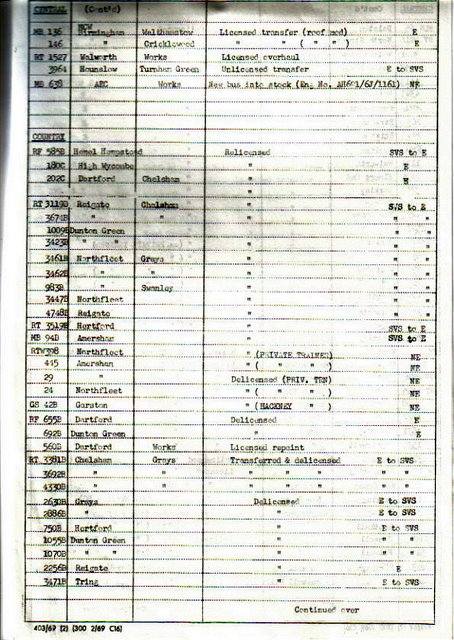 CENTRAL (Cont'd)
MCW
MB 136 Birmingham Walthamstow Licensed transfer (roof mod) E
146 " Cricklewood " ( " " ) E
RT 1527 Walworth Works Licensed overhaul
3964 Hounslow Turnham Green Unlicensed transfer E to SVS
MB 638 AEC Works New bus into stock (Eng No. AH691/67/1161) NE
COUNTRY
RF 585B Hemel Hempstead Relicensed SVS to E
180C High Wycombe " E
202C Dartford Chelsham " E
RT 3119B Reigate Chelsham " SVS to E
3674B " " " " "
1009B Dunton Green " " "
3423B " " " " "
3461B Northfleet Grays " " "
3462B " " " " "
983B " Swanley " " "
3447B Northfleet " " "
4748B Reigate " " "
RT 3519B Hertford " SVS to E
MB 94B Amersham " SVS to E
RTW308 Northfleet " (PRIVATE TRAINER) NE
445 Amersham " ( " " ) NE
29 " Delicensed (PRIV. TRN) NE
24 Northfleet " ( " ) NE
GS 42B Garston " (HACKNEY " ) NE
RF 655B Dartford Delicensed E
692B Dunton Green " E
560B Dartford Works Licensed repaint
RT 3381B Chelsham Grays Transferred & delicensed E to SVS
3692B " " " " " " "
4330B " " " " " " "
2630B Grays Delicensed E to SVS
2886B " " E to SVS
750B Hertford " E to SVS
1055B Dunton Green " " "
1070B " " " " "
2256B Reigate " E
3471B Tring " E to SVS
Continued over
403/69 (2) (300 2/69 C16)